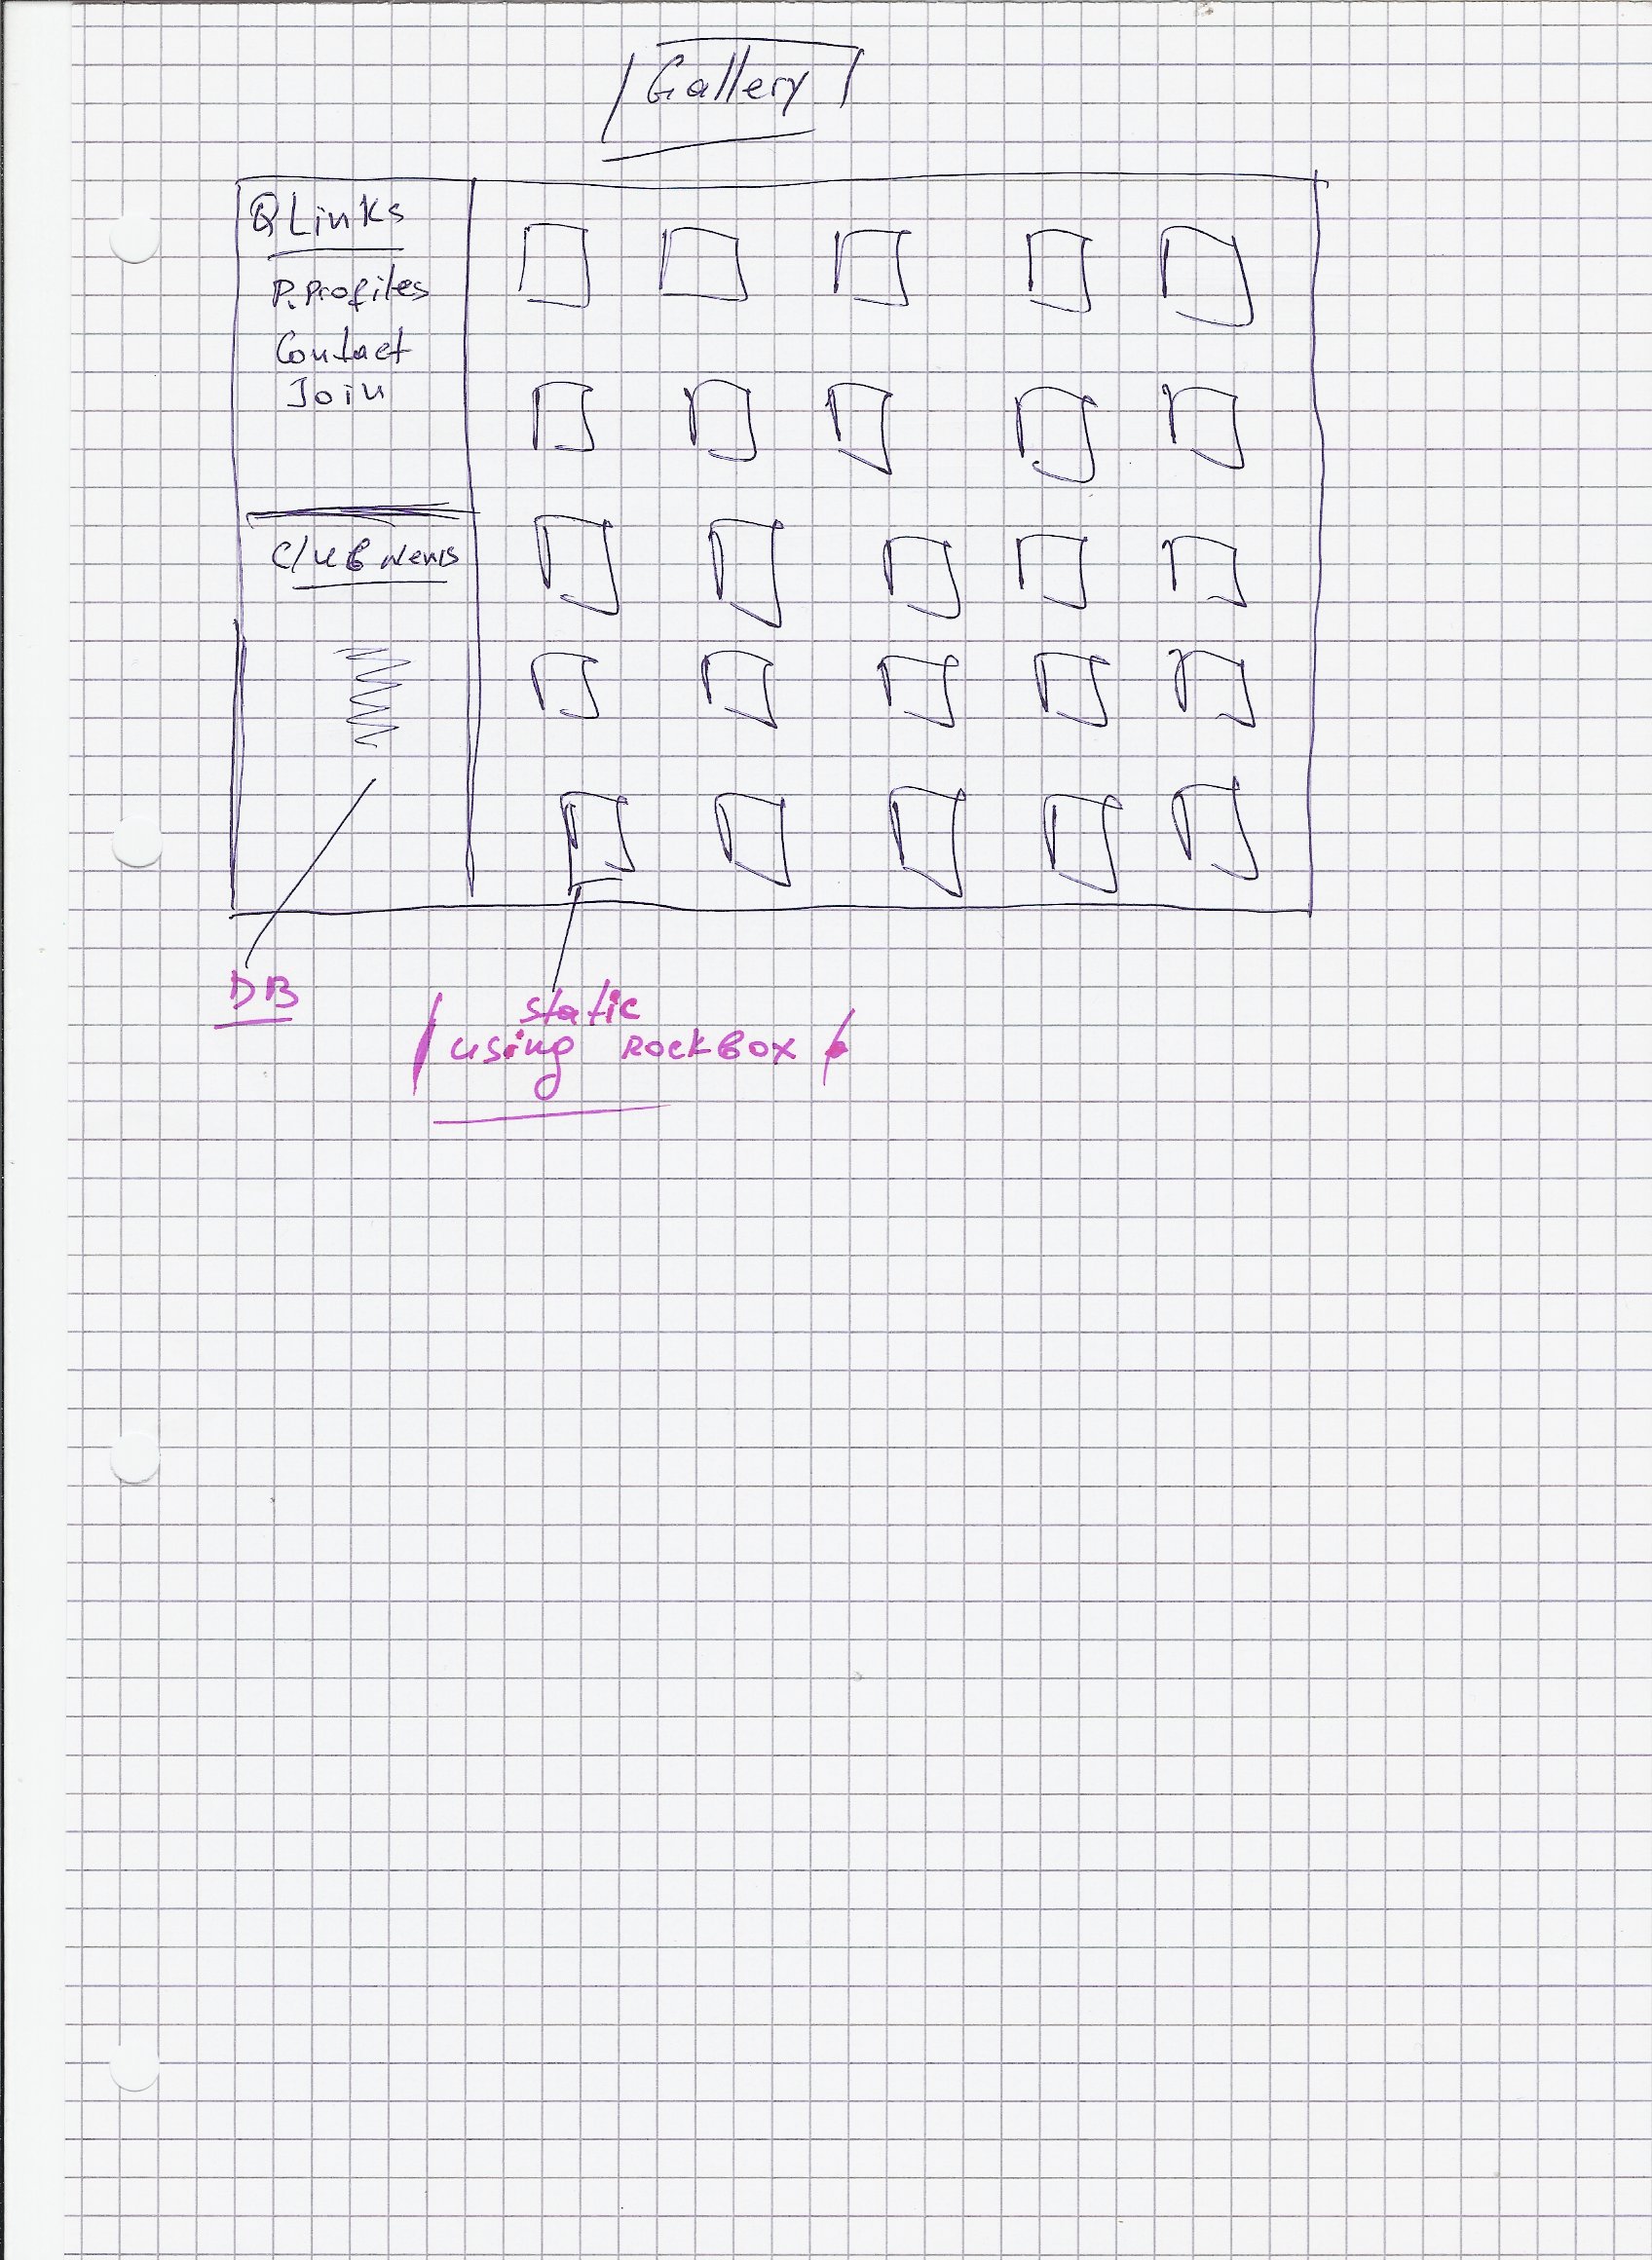 Gallery
QLinks
P.Profiles
Contact
Join
Club News
DB
static
using ROCKBOX